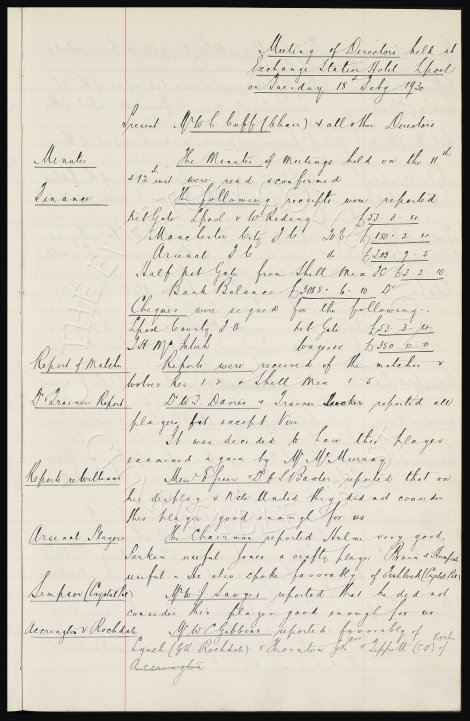 Meeting of Directors held at
Exchange Station Hotel L'pool
on Tuesday 18th Feby 1930
Present Mr W. C. Cuff (Chair) & all other Directors
Minutes The Minutes of Meetings held on the 11th
& 12th inst were read & confirmed
Finance The following receipts were reported
net Gate L'pool v W Riding £53 . 3 . 11
Manchester City F C £180 . 2 . 11
Arsenal F C do £203 . 9 . 5
Half net Gate from Shell Mex FC £3 . 2 . 10
Bank Balance £3088 . 6 . 10
Cheques were signed for the following:-
L'pool County F A net Gate £53 . 3 . 11
J H McIntosh wages £350 . 0 . 0
Report of Matches Reports were received of the matches v
Wolves Res 1 . 2 & Shell Mex 1 . 5 .
Dr & Trainer Report Dr W. J. Davies & Trainer reported all
players fit except
It was decided to have this player
examined again by Mr McMurray
Reports re Williams Mess E Green & Dr C S Baxter reported that on
his display v Notts United they did not consider
this player good enough for us
Arsenal Players The Chairman reported Hulme very good,
Parkin useful Jones a crafty player &
useful & he also spoke favorably of (Crystal Pal)
Simpson (Crystal Pal) Mr W J Sawyer reported that he did not
consider this player good enough for us.
Accrington v Rochdale Mr W C Gibbins reported favorably of
Lynch (GK Rochdale) & Thornton & Tippett (CO) of
Accrington